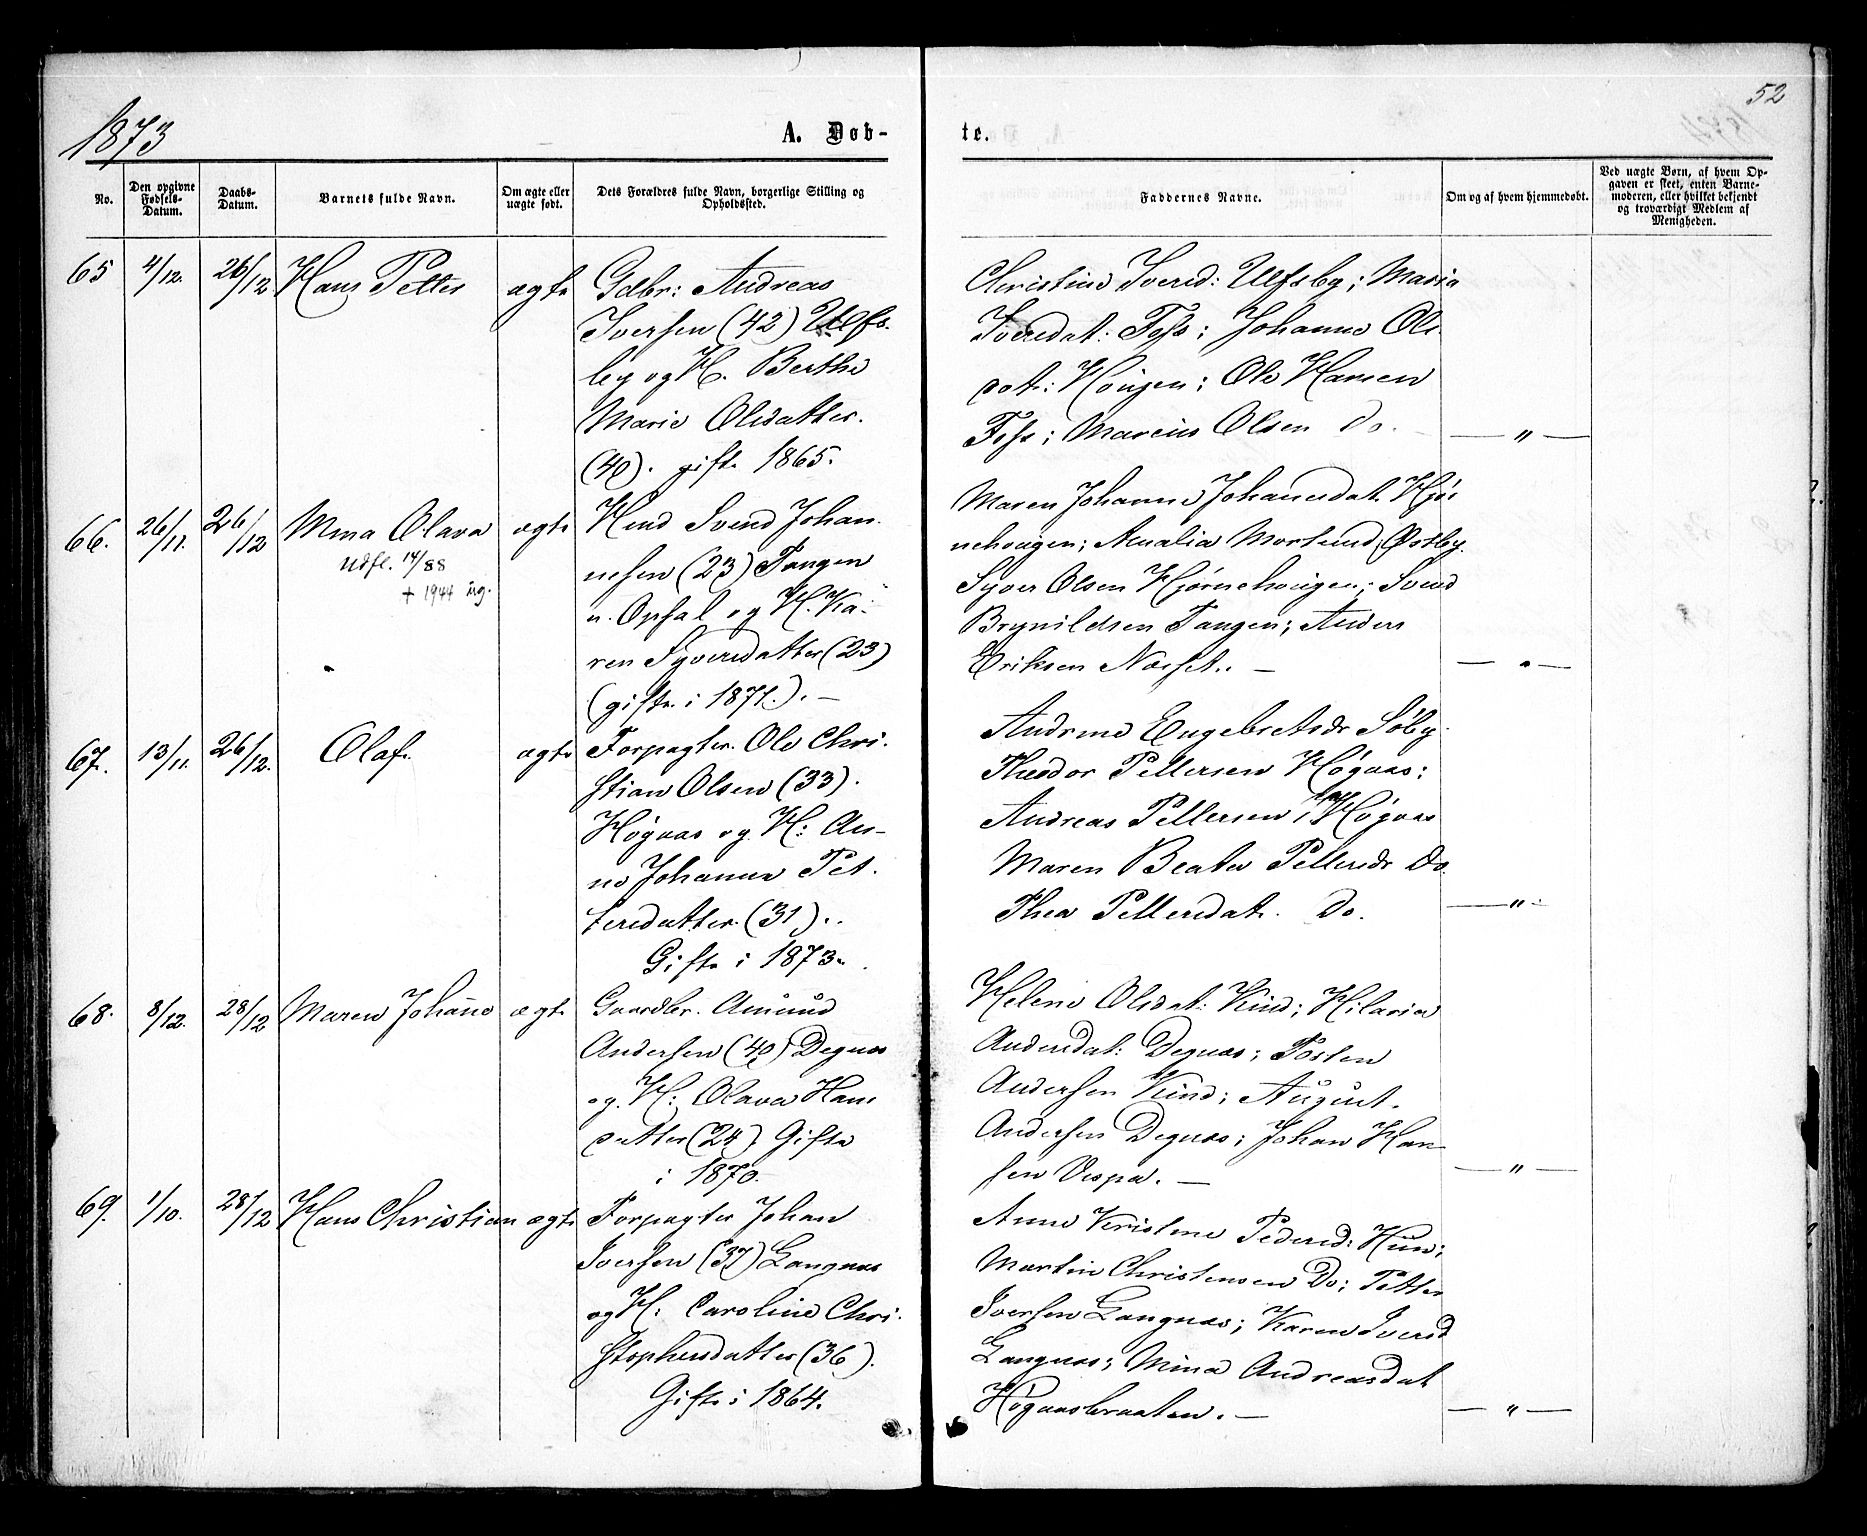 52
1873
A. Døb-
te.
No.
Den opgivne
Fødsels-
Datum.
Daabs-
Datum.
Barnets fulde Navn.
Om ægte eller
uægte født.
Dets Forældres fulde Navn, borgerlige Stilling og
Opholdssted.
Faddernes Navne.
Om og af hvem hjemmedøbt.
Ved uægte Børn, af hvem Op-
gaven er skeet, enten Barne-
moderen, eller hvilket bekjendt
og troværdigt Medlem af
Menigheden.
65 4/12. 26/12 Hans Petter ægte
Gdbr: Andreas
Iversen (42) Ulfs-
by og H. Berthe
Marie Olsdatter.
(40). gifte 1865.
Christine Iversd: Ulfsby; Maria
Iversdat: Foss; Johanne Ols
dat: Hougen; Ole Hansen
Foss; Marcius Olsen Do.
— " —
66. 26/11. 26/12 Mina Olava ægte
Udfl. 14/88
+ 1944
Husmd Svend Johan
nesen (23) Tangen
u. Opsal og H. Ka-
ren Syversdatter (23)
(gifte i 1871.). —
Maren Johanne Johannesdat. Hjør
nehougen; Amalia Morlund, Østby.
Syver Olsen Hjørnehougen; Svend
Brynildsen Tangen; Anders
Eriksen Næsset. —
— " —
67. 13/11. 26/12. Olaf. ægte
Forpagter. Ole Chri-
stian Olsen (33).
Høgaas og H: An-
ne Johanne Pet-
tersdatter (31).
Gifte i 1873.
Andrine Engebretsdr Søby.
Theodor Pettersen Høgaas;
Andreas Pettersen Høgaas
Maren Beate Pettersdr Do.
Thea Pettersdat. Do.
— " —
68. 8/12. 28/12 Maren Johanne ægte
Gaardbr. Amund
Andersen (40) Degnæs
og H: Olava Hans
datter (24) Gifte
i 1870.
Helene Olsdat: Kind; Hilaria
Andersdat: Degnæs; Tosten
Andersen Kind; August
Andersen Degnæs; Johan Han
sen Vespa. —
— " —
69. 1/10. 28/12 Hans Christian ægte
Forpagter Johan
Iversen (37) Langnæs
og H: Caroline Chri-
stophersdatter (36).
Gifte i 1864.
Anne Kristine Pedersd: Huser;
Martin Christensen Do; Petter
Iversen Langnæs; Karen Iversd
Langnæs; Mina Andreasdat
Høgaasbraaten. —
— " —